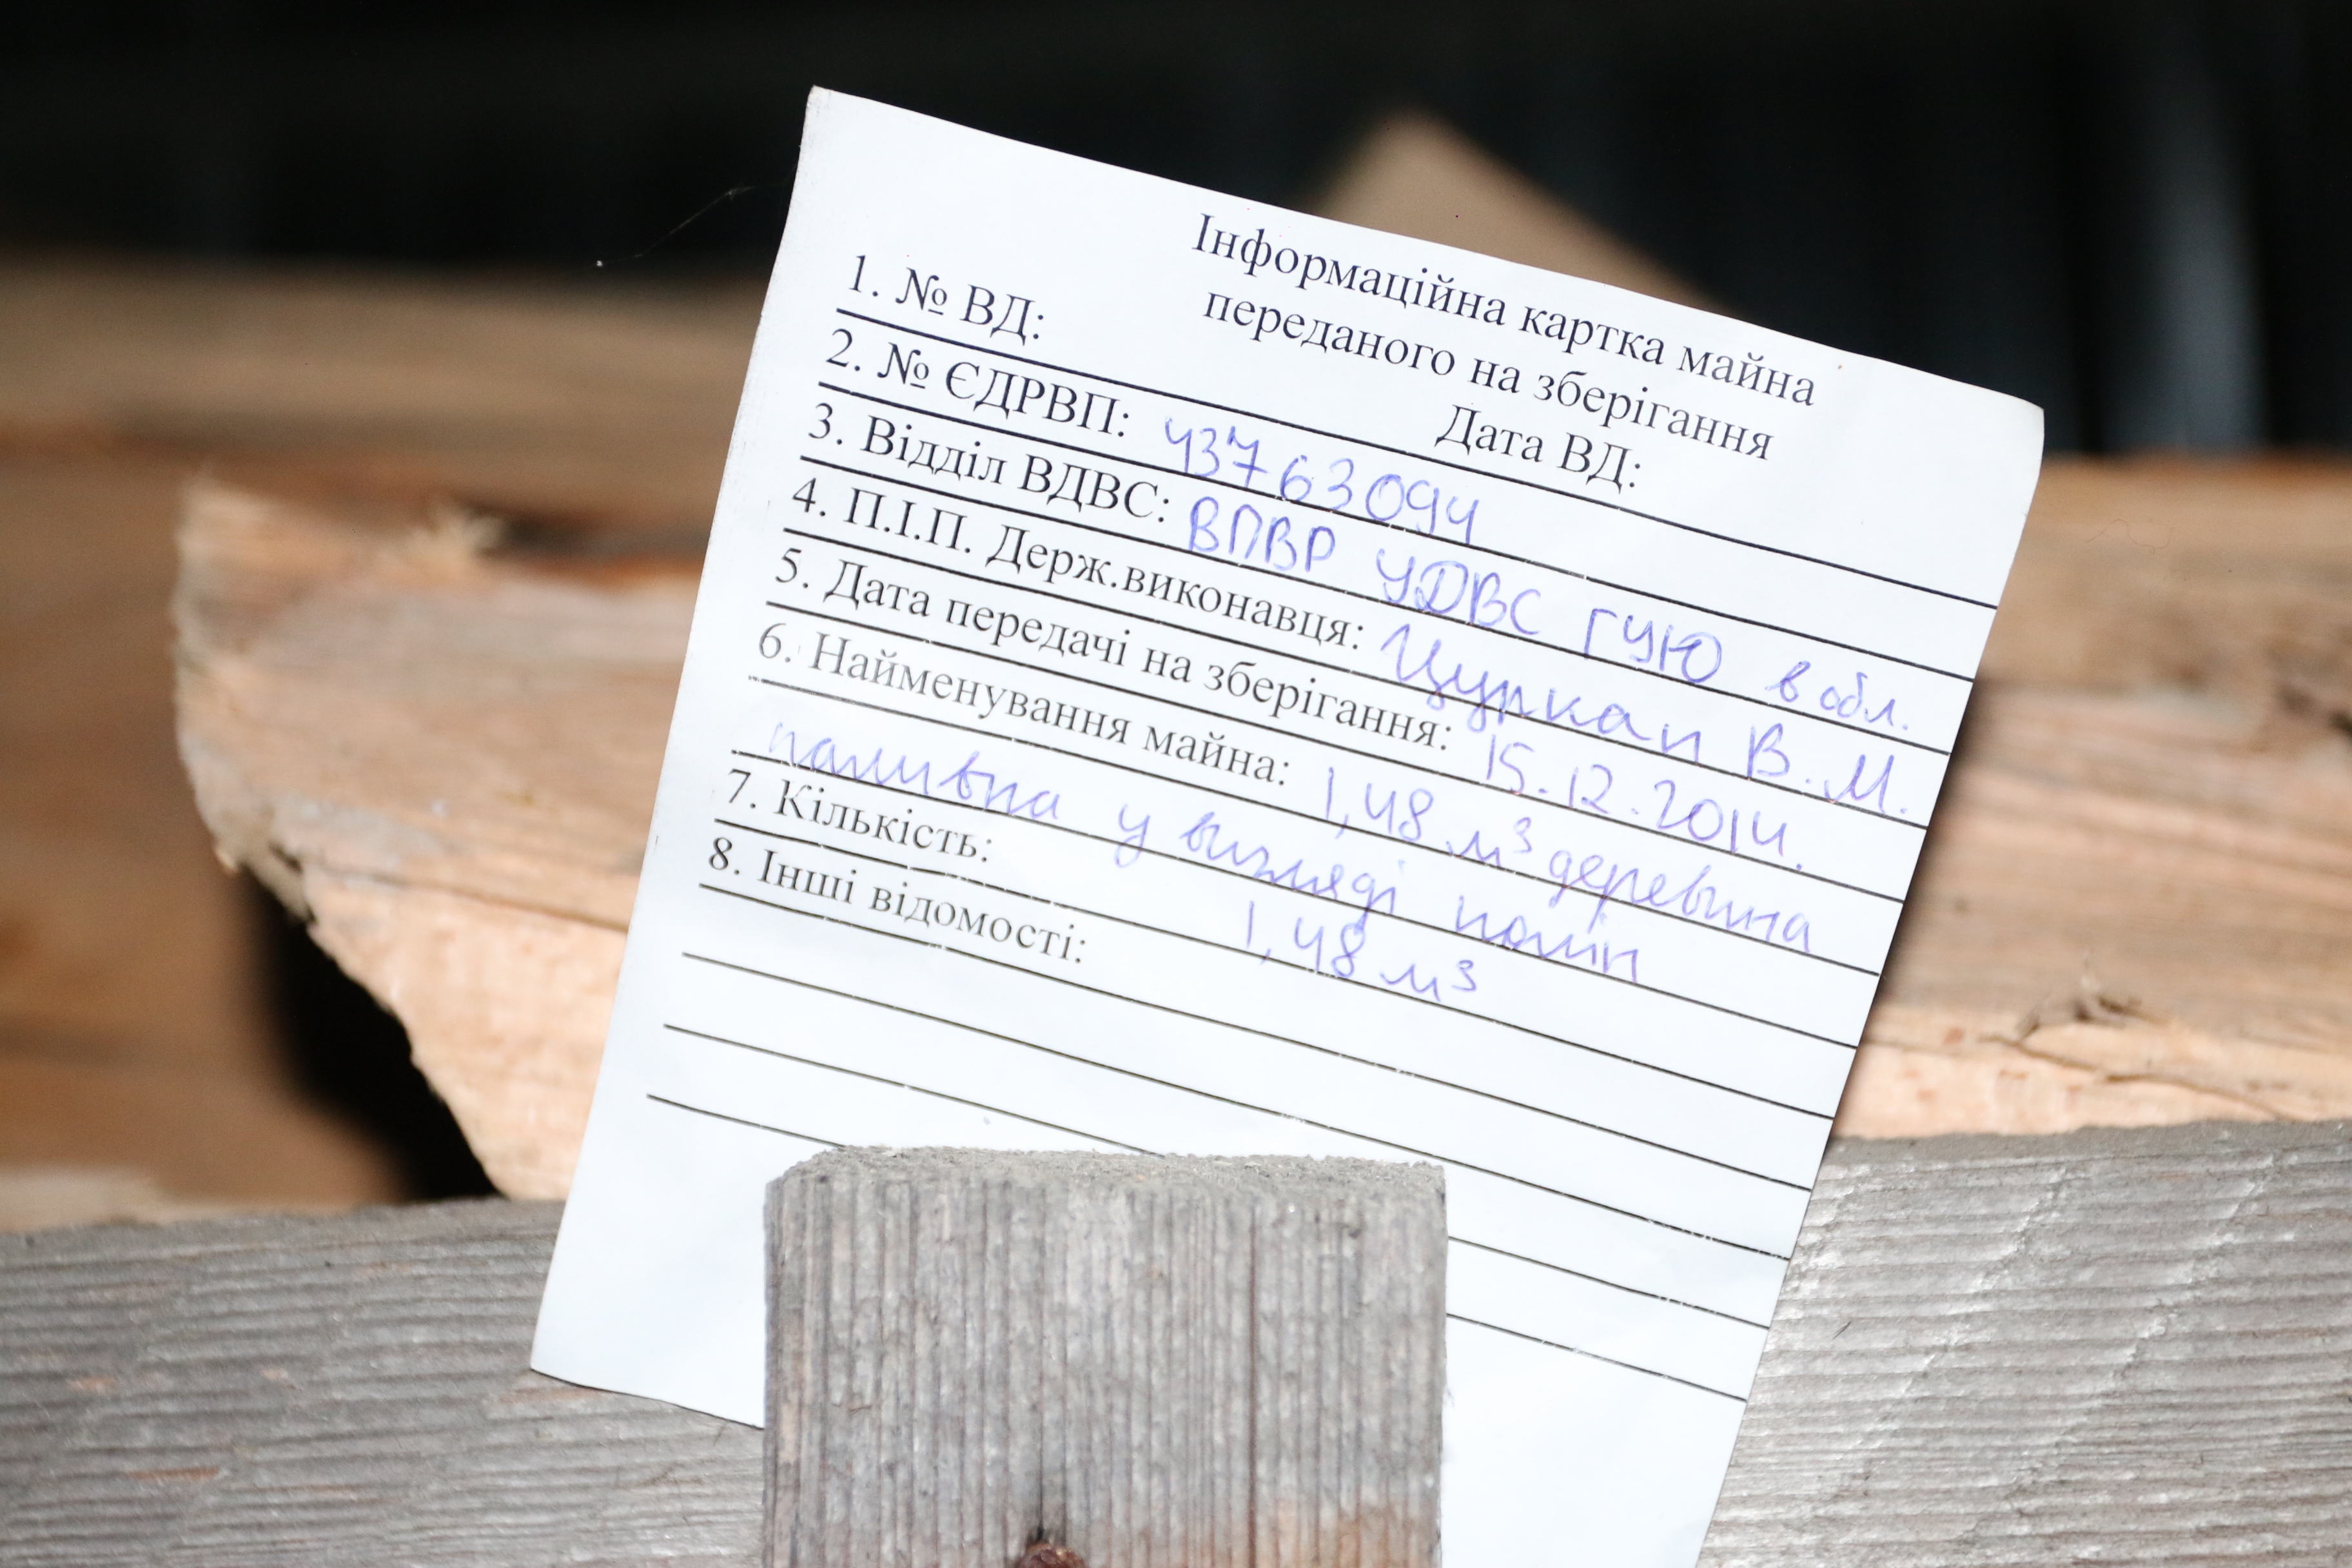 Інформаційна картка майна
переданого на зберігання
1. № ВД: Дата ВД:
2. № ЄДРВП: 43763094
3. Відділ ВДВС: ВПВР УДВС ГУЮ в обл.
4. П.І.П. Держ.виконавця: Цуркан В.М.
5. Дата передачі на зберігання: 15.12.2014.
6. Найменування майна: 1,48 м³ деревина
паливна у вигляді полін
7. Кількість: 1,48 м³
8. Інші відомості: